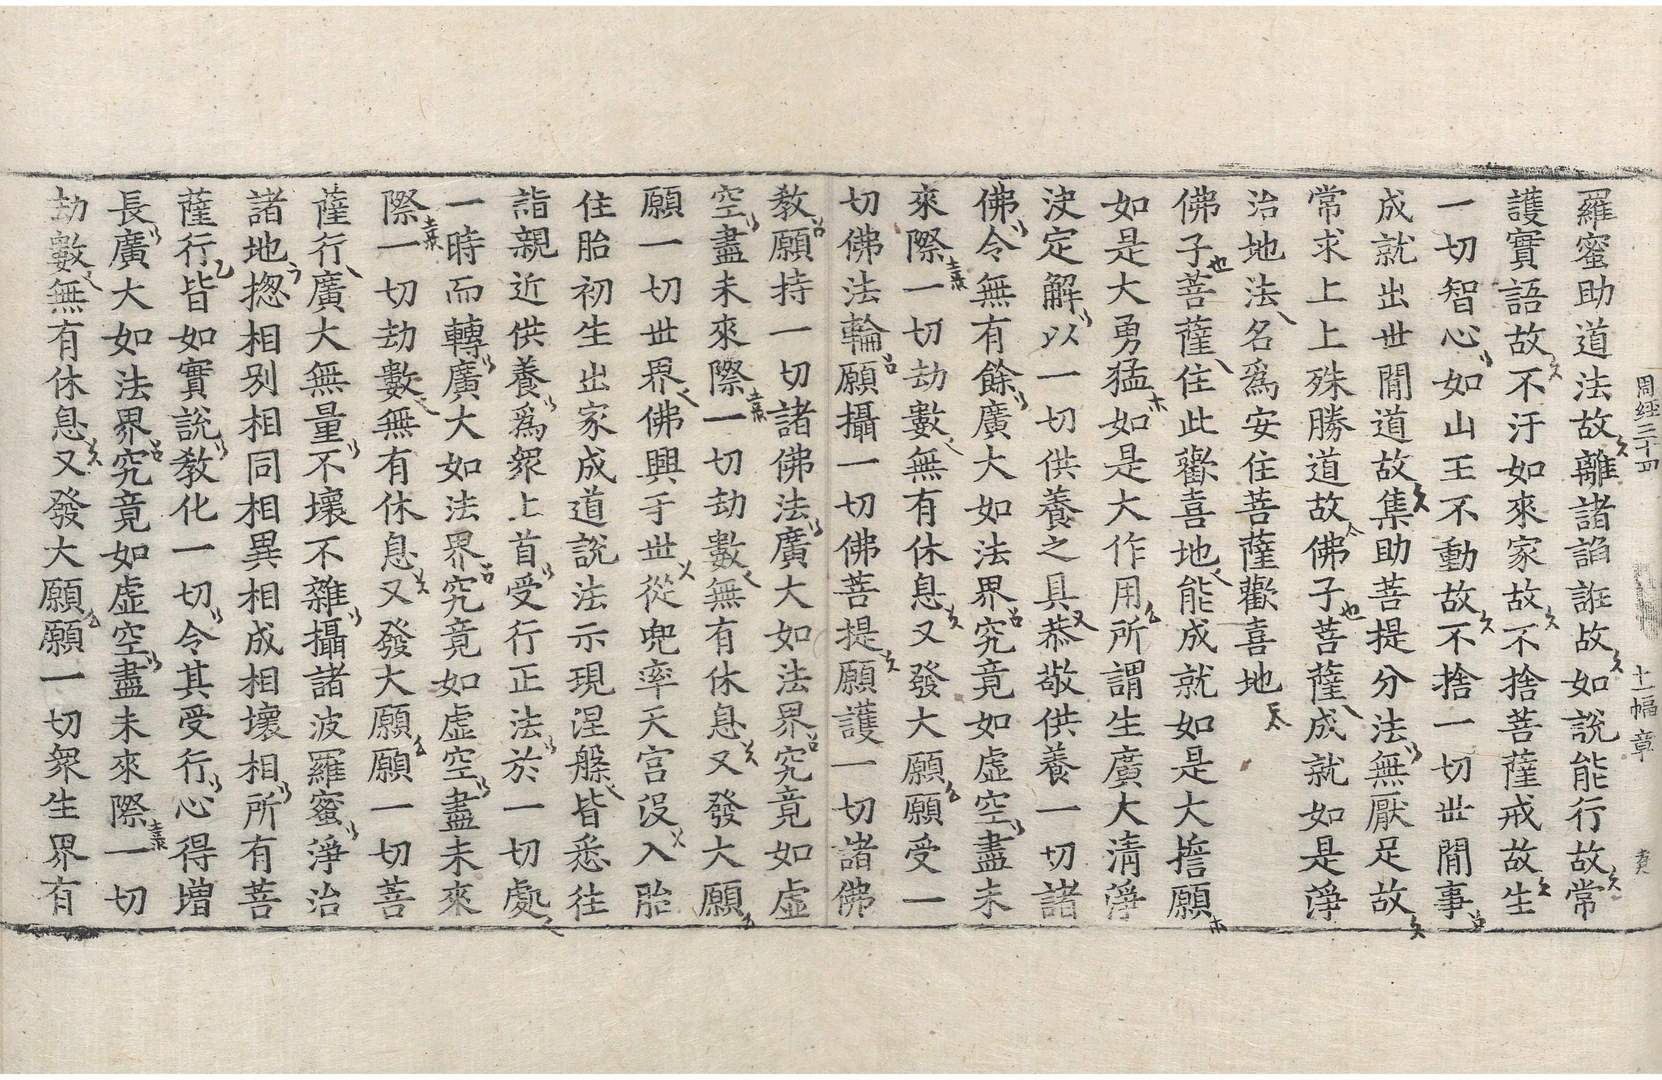 周經三十四 十一幅 章
羅蜜助道法故離諸謟誑故如說能行故常
護實語故不汙如來家故不捨菩薩戒故生
一切智心如山王不動故不捨一切世閒事
成就出世閒道故集助菩提分法無厭足故
常求上上殊勝道故佛子菩薩成就如是淨
治地法名爲安住菩薩歡喜地
佛子菩薩住此歡喜地能成就如是大擔願
如是大勇猛如是大作用所謂生廣大淸淨
決定解以一切供養之具恭敬供養一切諸
佛令無有餘廣大如法界究竟如虛空盡未
來際一切劫數無有休息又發大願願受一
切佛法輪願攝一切佛菩提願護一切諸佛
敎願持一切諸佛法廣大如法界究竟如虛
空盡未來際一切劫數無有休息又發大願
願一切世界佛興于世從兜率天宮沒入胎
住胎初生出家成道說法示現涅槃皆悉往
詣親近供養爲衆上首受行正法於一切處
一時而轉廣大如法界究竟如虛空盡未來
際一切劫數無有休息又發大願願一切菩
薩行廣大無量不壞不雜攝諸波羅蜜淨治
諸地揔相別相同相異相成相壞相所有菩
薩行皆如實說敎化一切令其受行心得增
長廣大如法界究竟如虛空盡未來際一切
劫數無有休息又發大願願一切衆生界有